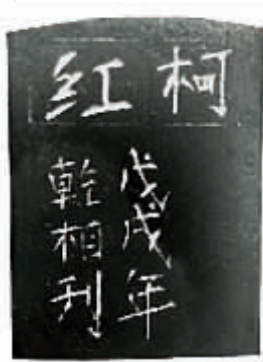 柯红
戊戌年
乾栢刊